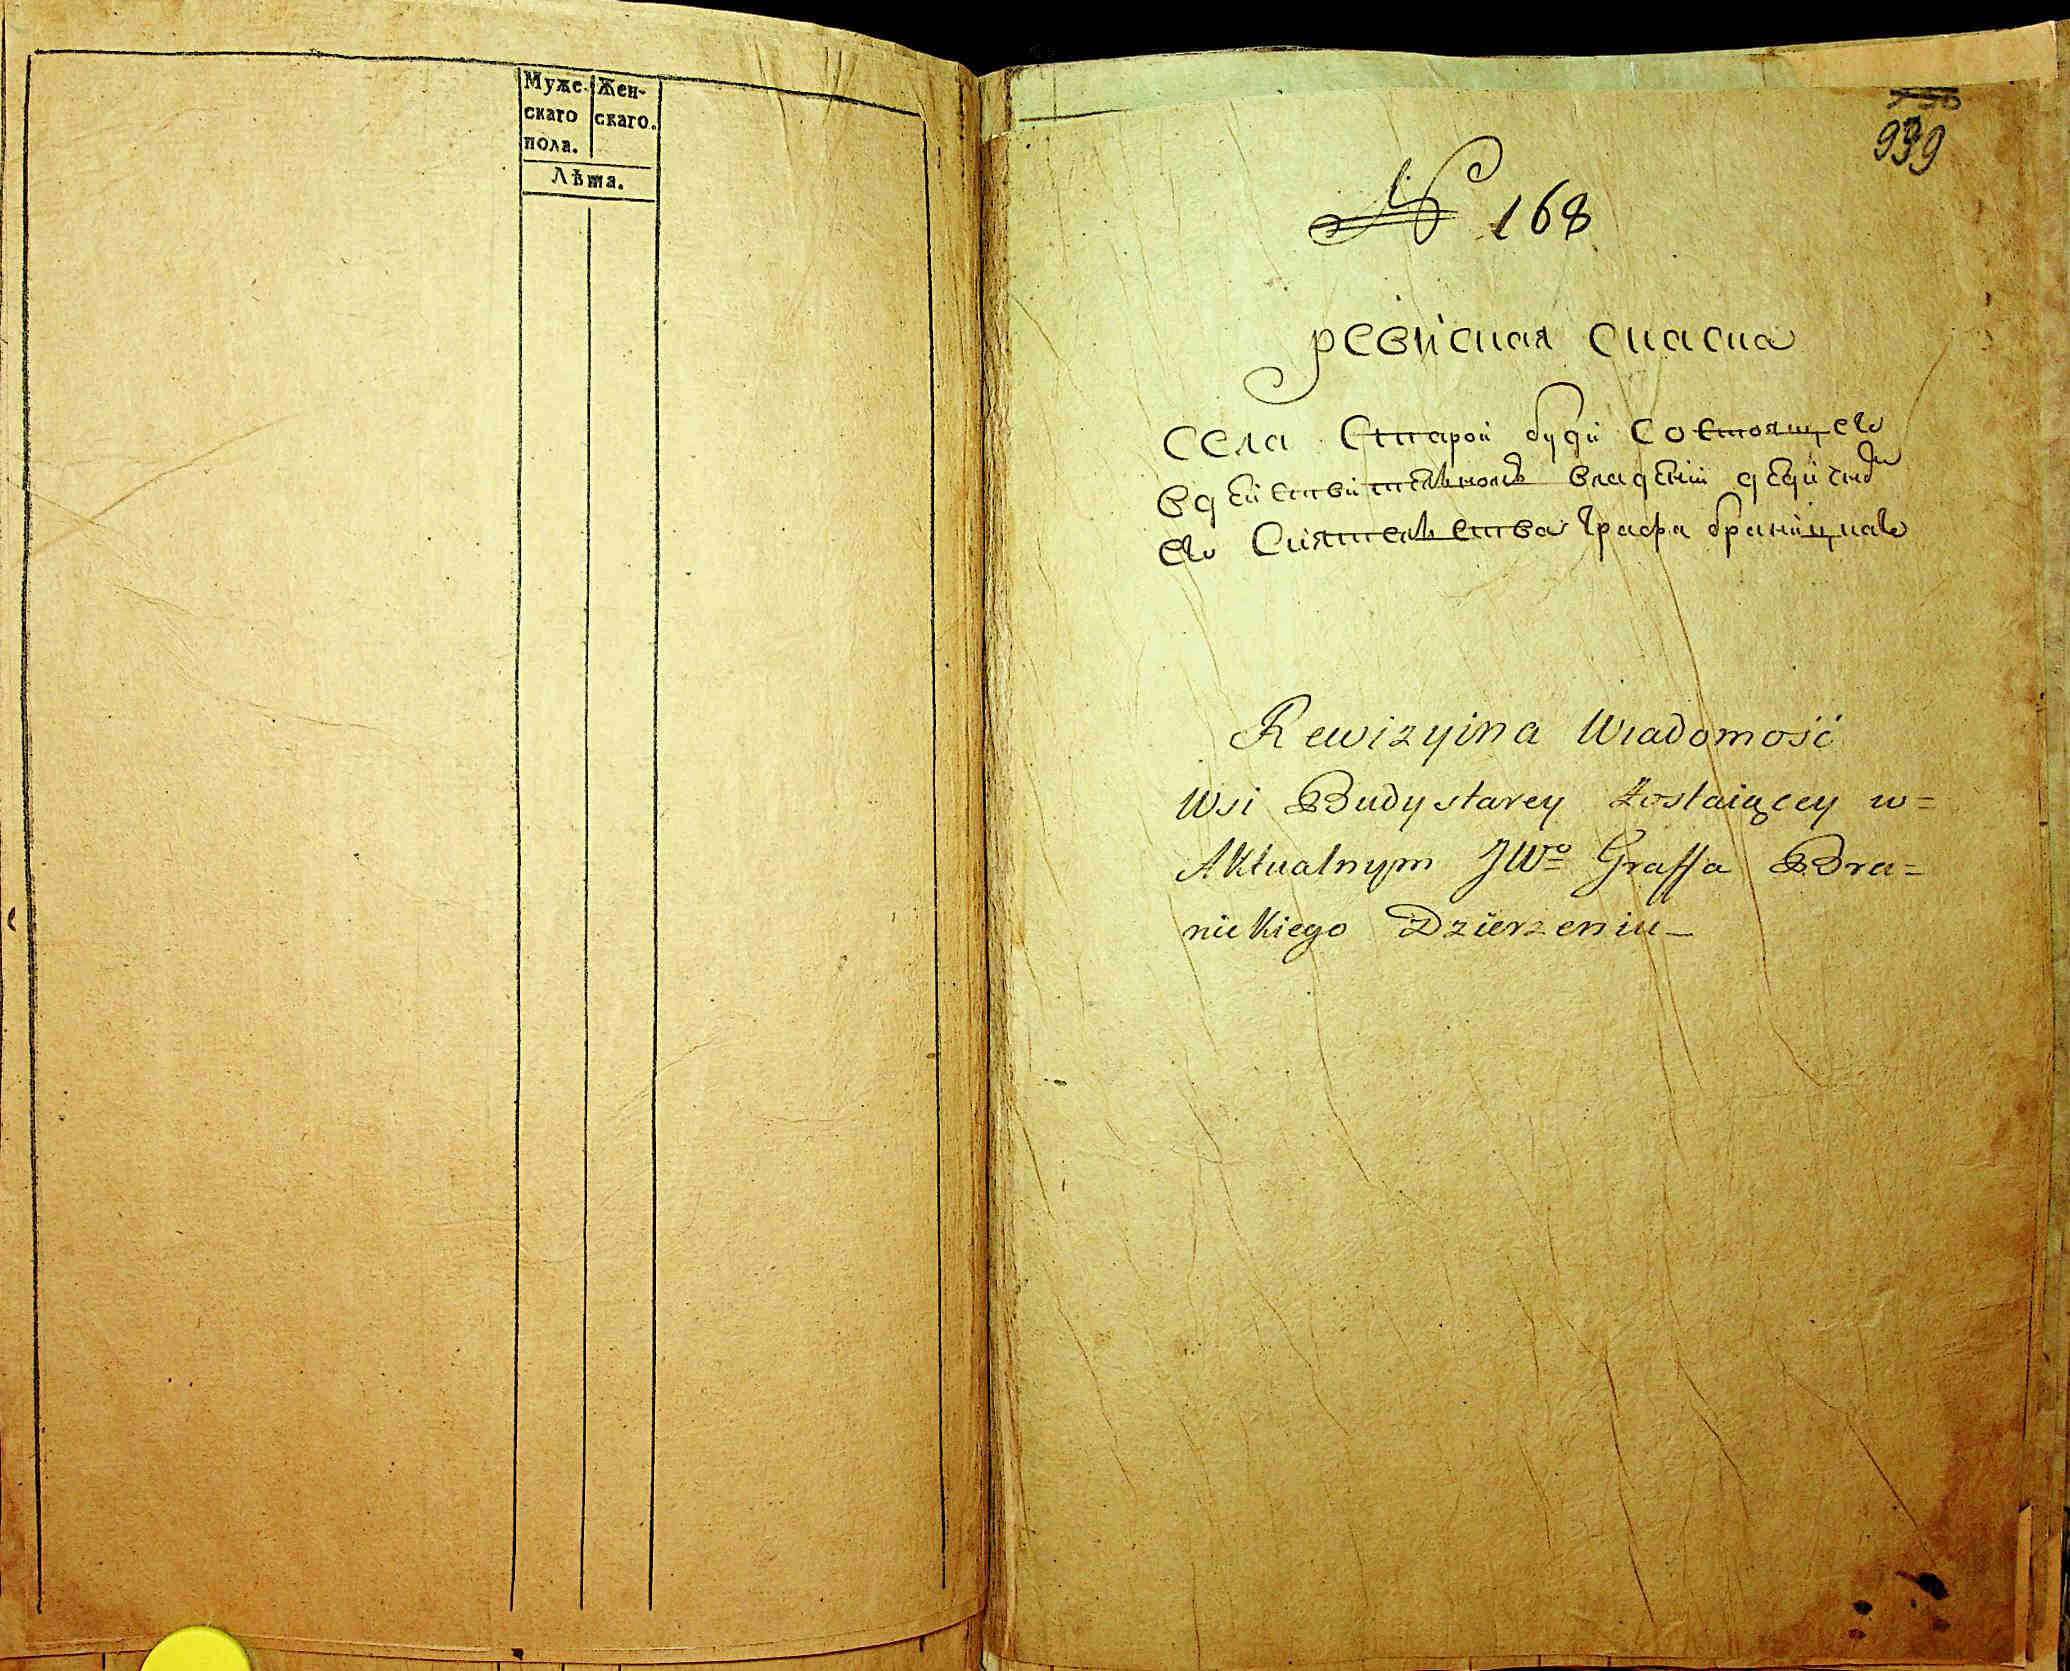 Муже-
скаго
пола.
Жен-
скаго.
Лѣта.
939
№ 168
ревиская скаска
села Старой буди состоящего
в действителномъ владении
его Сиятелства графа браницкаго
Rewizyina Wiadomość
Wsi Budystarey Zostaiącey w=
Aktualnym JWo Graffa Bra=
nickiego Dzierzeniu_